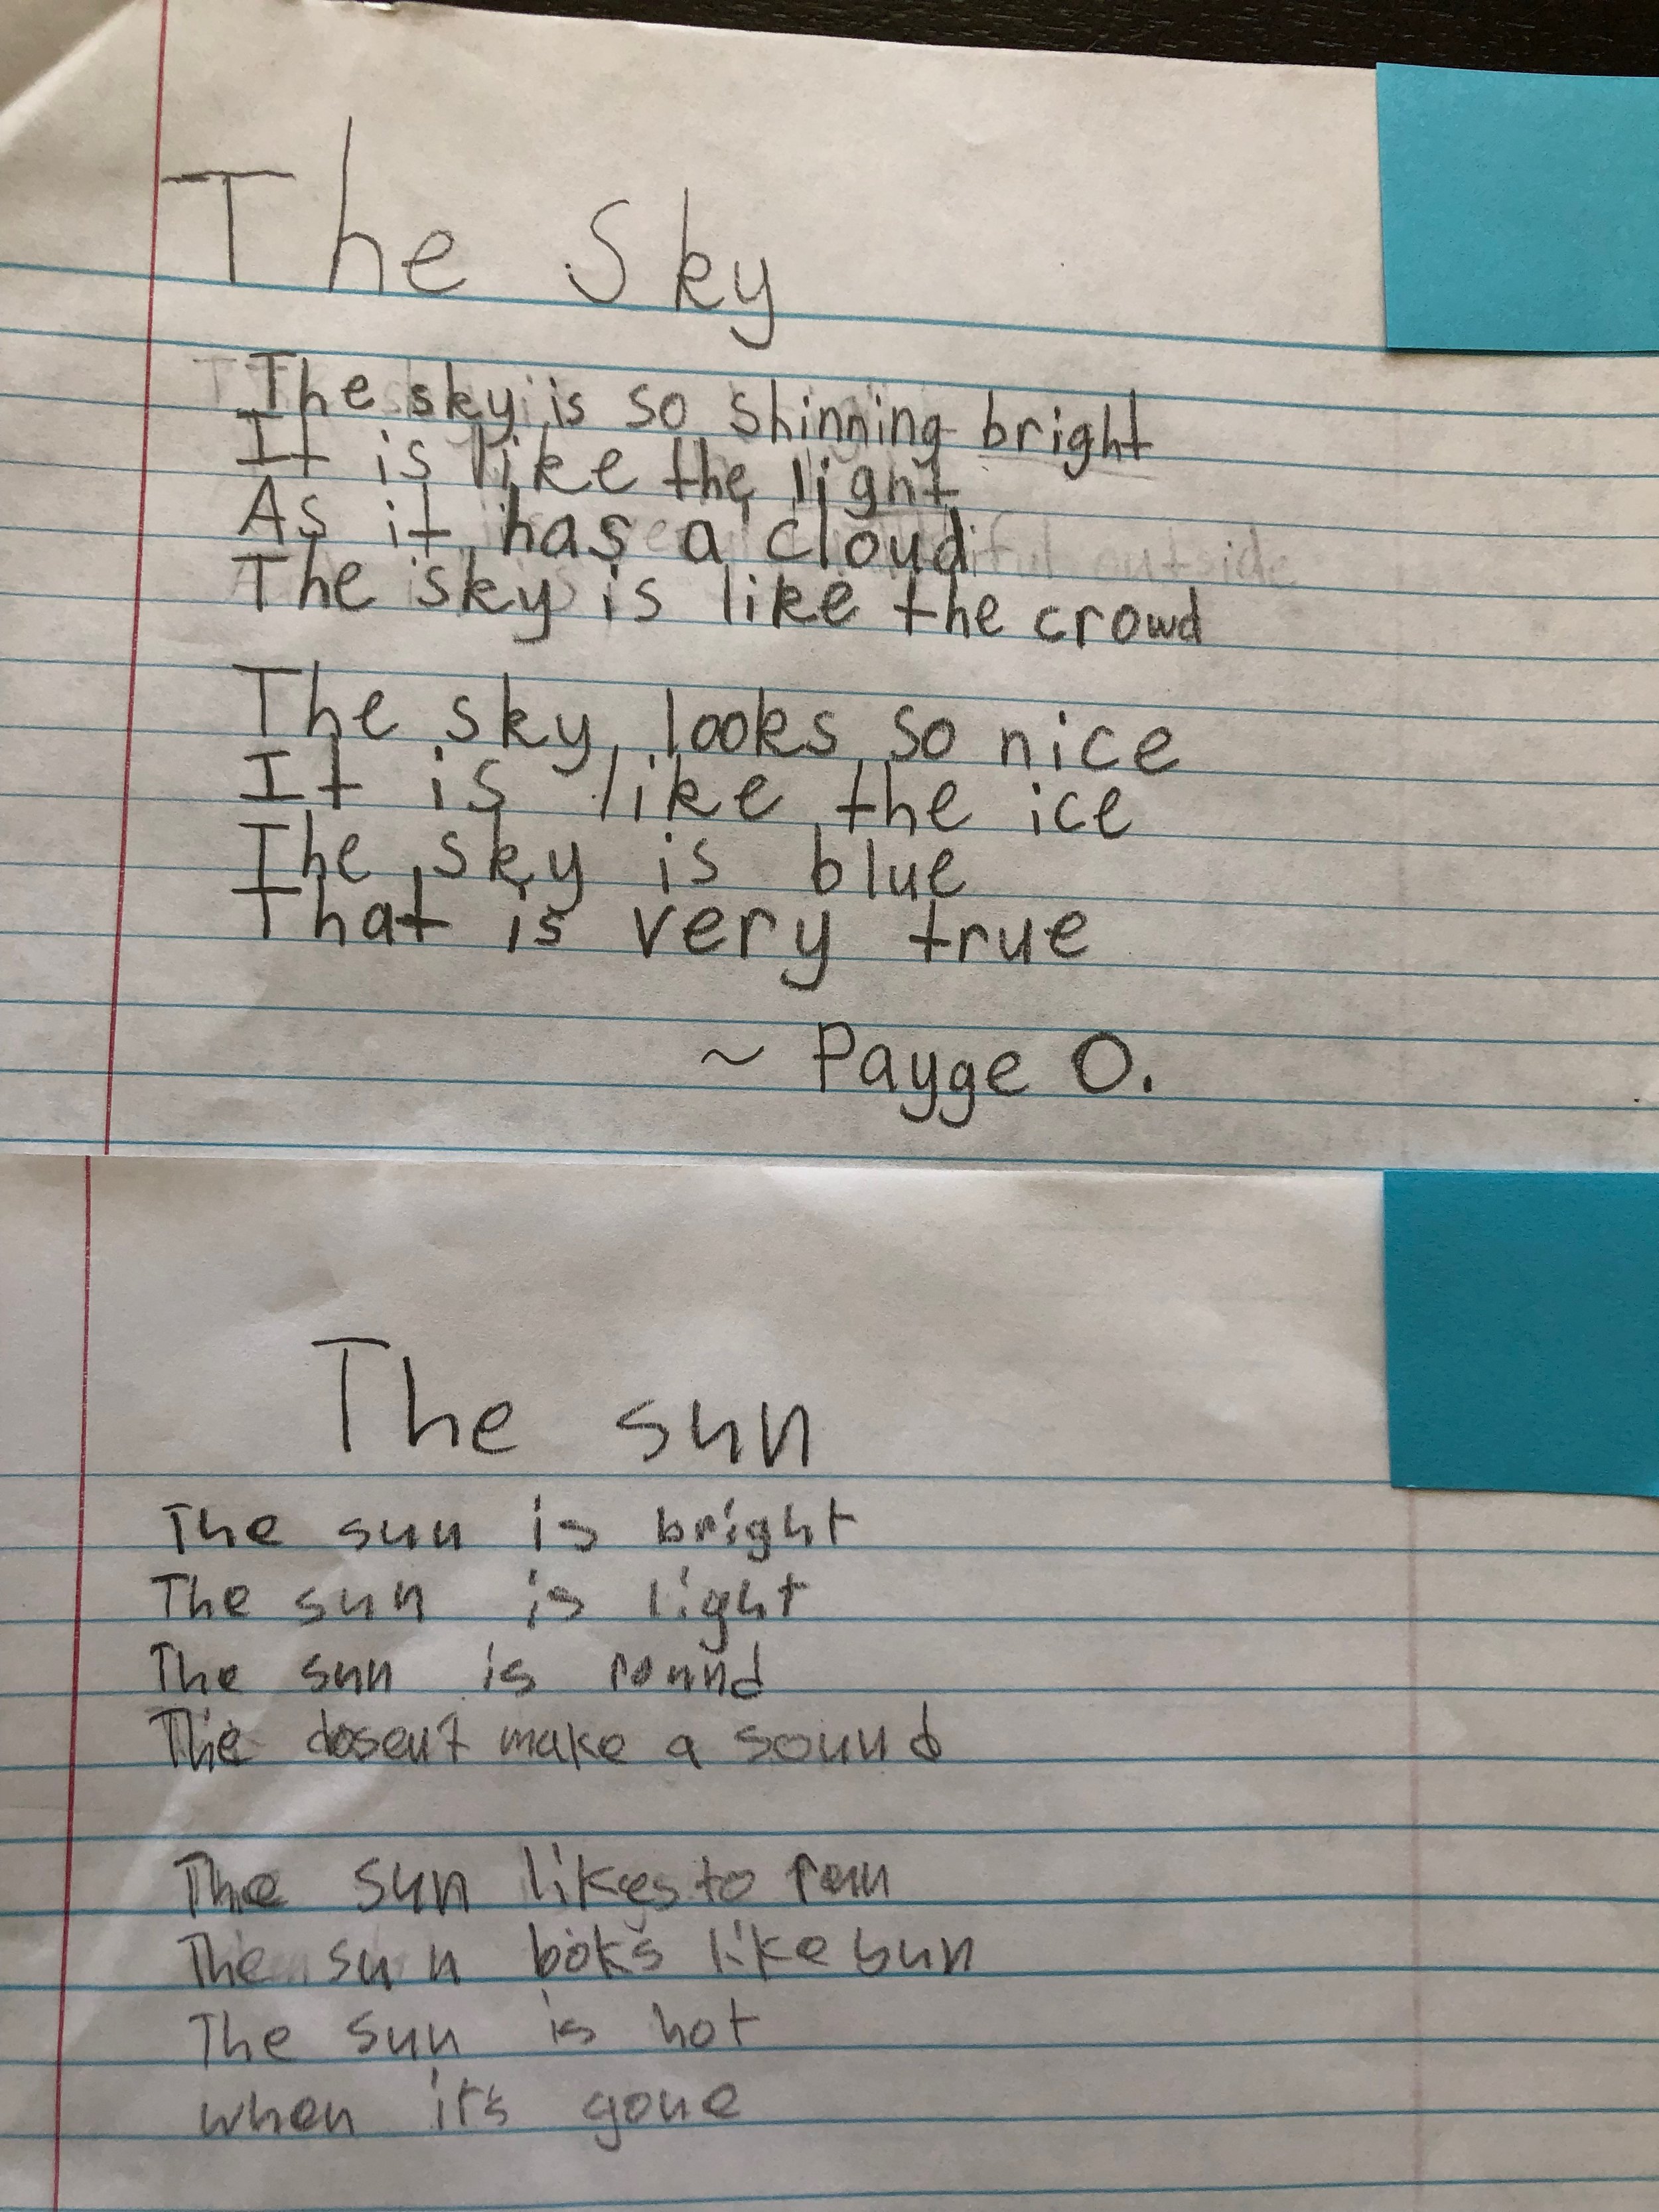 The Sky
The sky is so shinning bright
It is like the light
As it has a cloud
The sky is like the crowd
The sky looks so nice
It is like the ice
The sky is blue
That is very true
~ Payge O.
The sun
The sun is bright
The sun is light
The sun is round
The dosent make a sound
The sun likes to run
The sun looks like bun
The sun is hot
when it's gone